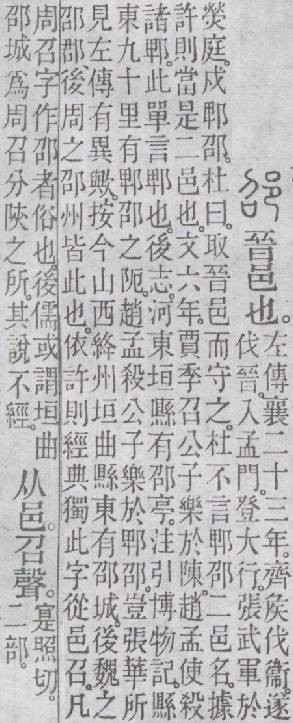 邵 晉邑也。
左傳襄二十三年。齊矦伐衞。遂
伐晉。入孟門。登大行。張武軍於
熒庭。戍郫邵。杜曰。取晉邑而守之。杜不言郫邵二邑名。據
許則當是二邑也。文六年。賈季召公子樂於陳。趙孟使殺
諸郫。此單言郫也。後志。河東垣縣有邵亭。注引博物記。縣
東九十里有郫邵之阨。趙孟殺公子樂於郫邵。豈張華所
見左傳有異歟。按今山西絳州垣曲縣東有邵城。後魏之
邵郡。後周之邵州皆此也。依許則經典獨此字從邑召。凡
周召字作邵者俗也。後儒或謂垣曲
邵城爲周召分陝之所。其說不經。
从邑。召聲。
寔照切。
二部。